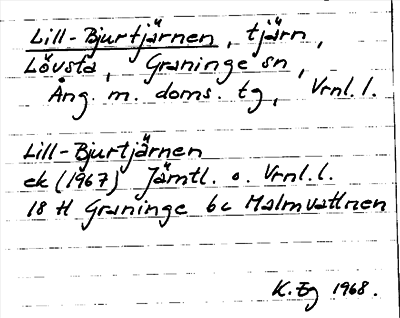 Lill-Bjurtjärnen, tjärn,
Lövsta, Graninge sn,
Ång. m. doms. tg, Vrnl. l.
Lill-Bjurtjärnen
ek (1967) Jämtl. o. Vrnl. l.
18 H Graninge 6c Malmvattnen
K. Eg 1968.